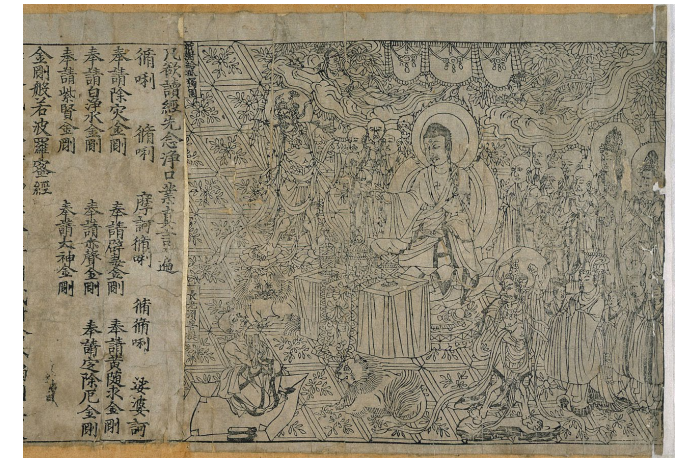 祇樹給孤獨園
凡欲讀經先念淨口業真言一遍
脩唎 脩唎 摩訶脩唎 脩脩唎 娑婆訶
奉請除灾金剛 奉請辟毒金剛 奉請黃隨求金剛
奉請白淨水金剛 奉請赤聲金剛 奉請定除厄金剛
奉請紫賢金剛 奉請大神金剛
金剛般若波羅蜜經